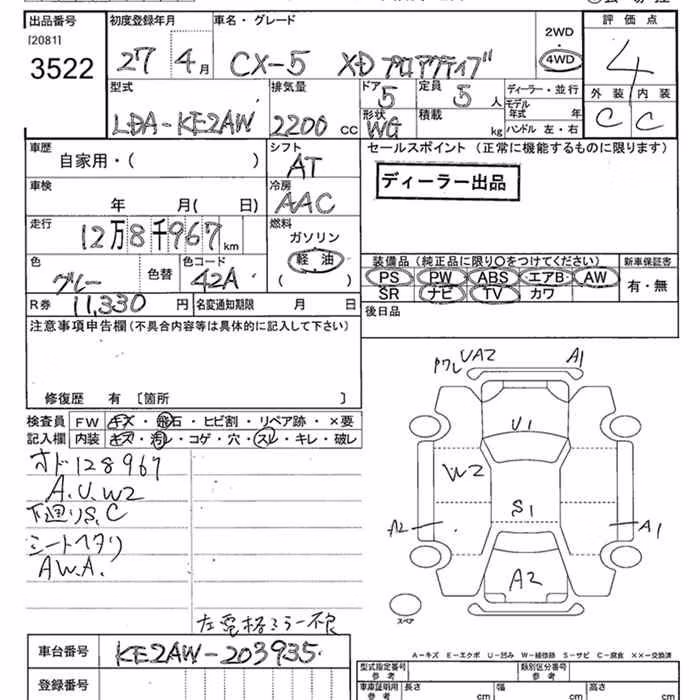 出品番号 初度登録年月 車名・グレード 評価点
[2081]
3522 27年 4月 CX-5 XD プロアクティブ 2WD 4WD 4
型式 排気量 ドア 定員 ディーラー・並行 外装 内装
LDA-KE2AW 2200 cc 5 5人 モデル年式 年 C C
形状 WG 積載 kg ハンドル 左・右
車歴 シフト セールスポイント (正常に機能するものに限ります)
自家用・( ) AT
ディーラー出品
車検 冷房
年 月( 日) AAC
走行 燃料
12万8千967km ガソリン
軽油
( )
色 色替 色コード
グレー 42A
装備品 (純正品に限り○をつけてください) 新車保証書
PS PW ABS エアB AW 有・無
SR ナビ TV カワ
R券 11,330円 名変通知期限 月 日
後日品
注意事項申告欄 (不具合内容等は具体的に記入して下さい)
修復歴 有 [箇所 ]
検査員 FW キズ・飛石・ヒビ割・リペア跡・×要
記入欄 内装 キズ・汚レ・コゲ・穴・スレ・キレ・破レ
オド128967
A.U.W2
下廻りS.C
シートヘタリ
AW.A.
左電格ミラー不良
ワレ UA2 A1
U1
W2
S1
A2 A1
A2
スペア
A-キズ E-エクボ U-凹み W-補修跡 S-サビ C-腐食 XX-交換済
車台番号 KE2AW-203935
型式指定番号 参考 類別区分番号 参考
登録番号
車庫証明用 参考 長さ cm 幅 cm 高さ cm